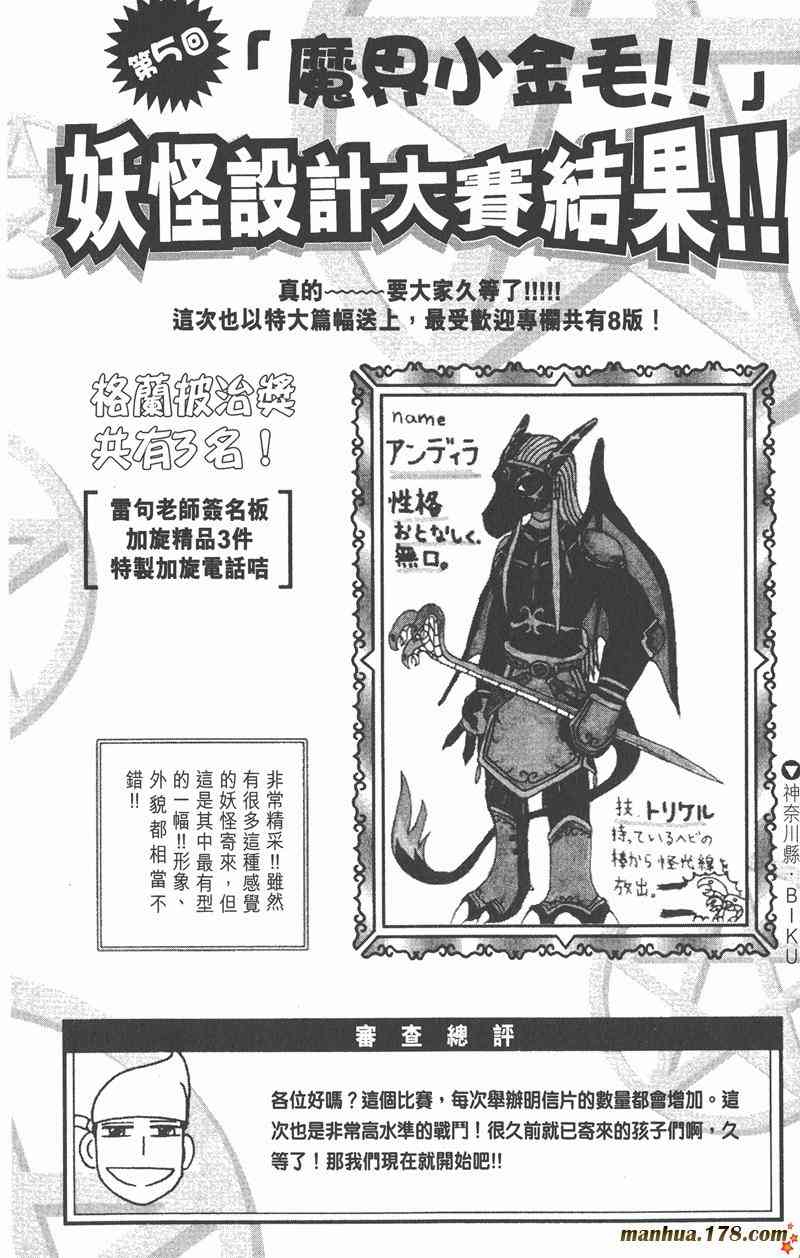 第5回
「魔界小金毛!!」
妖怪設計大賽結果!!
真的~~~~~要大家久等了!!!!!
這次也以特大篇幅送上，最受歡迎專欄共有8版！
格蘭披治獎
共有3名！
雷句老師簽名板
加旋精品3件
特製加旋電話咭
name
アンディラ
性格
おとなしく、
無口。
技 トリケル
持っているヘビの
棒から怪光線を
放出。
神奈川縣・BIKU
非常精采!!雖然
有很多這種感覺
的妖怪寄來，但
這是其中最有型
的一幅!!形象、
外貌都相當不
錯!!
審查總評
各位好嗎？這個比賽，每次舉辦明信片的數量都會增加。這
次也是非常高水準的戰鬥！很久前就已寄來的孩子們啊，久
等了！那我們現在就開始吧!!
manhua.178.com